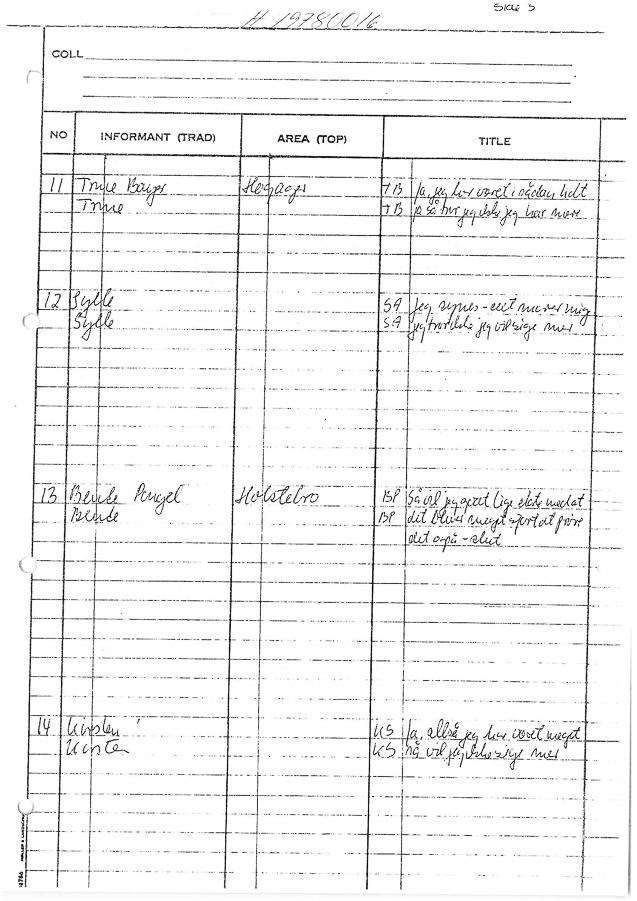 Side 3
H 19780016
COLL
NO INFORMANT (TRAD) AREA (TOP) TITLE
11 Trine TB Ja, jeg har været i sådan lidt
Trine TB ja så tror jeg ikke jeg har mere
12 Sylle SA Jeg synes - det morer mig
Sylle SA jeg tror ikke jeg vil sige mer
13 Bente Pengel Holstebro BP Så vil jeg godt lige starte med at
Bente BP det bliver meget sjovt at prøve
det også - slut
14 Kirsten KS Ja, altså jeg har været meget
Kirsten KS så vil jeg ikke sige mer
4766